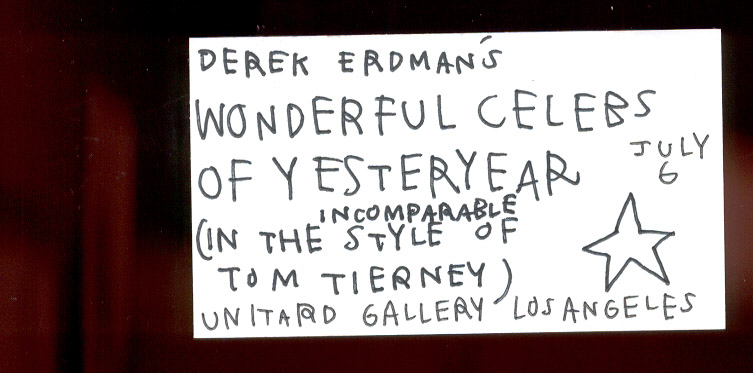 DEREK ERDMAN'S
WONDERFUL CELEBS
OF YESTERYEAR
JULY
6
INCOMPARABLE
(IN THE STYLE OF
TOM TIERNEY)
UNITARD GALLERY LOS ANGELES